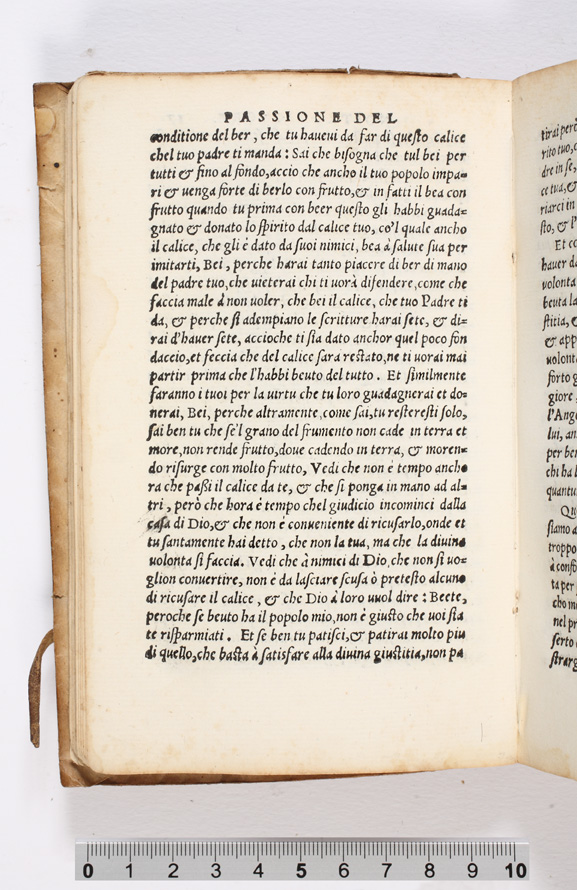 PASSIONE DEL
conditione del ber, che tu haueui da far di queſto calice
chel tuo padre ti manda: Sai che biſogna che tul bei per
tutti & fino al fondo, accio che anche il tuo popolo impa=
ri & uenga forte di berlo con frutto, & in fatti il bea con
frutto quando tu prima con beer queſto gli habbi guada=
gnato & donato lo ſpirito dal calice tuo, co'l quale ancho
il calice, che gli è dato da ſuoi nimici, bea à ſalute ſua per
imitarti, Bei, perche harai tanto piacere di ber di mano
del padre tuo, che uieterai chi ti uorà difendere, come che
faccia male à non uoler, che bei il calice, che tuo Padre ti
da, & perche ſi adempiano le ſcritture harai ſete, & di=
rai d'hauer ſete, accioche ti ſia dato anchor quel poco fon
daccio, et feccia che del calice ſara reſtato, ne ti uorai mai
partir prima che l'habbi beuto del tutto. Et ſimilmente
faranno i tuoi per la uirtu che tu loro guadagnerai et do=
nerai, Bei, perche altramente, come ſai, tu reſtereſti ſolo,
ſai ben tu che ſe'l grano del frumento non cade in terra et
more, non rende frutto, doue cadendo in terra, & moren=
do riſurge con molto frutto, Vedi che non è tempo ancho
ra che paßi il calice da te, & che ſi ponga in mano ad al=
tri, però che hora è tempo chel giudicio incominci dalla
caſa di Dio, & che non è conueniente di ricuſarlo, onde et
tu ſantamente hai detto, che non la tua, ma che la diuina
uolonta ſi faccia. Vedi che à nimici di Dio, che non ſi uo=
glion conuertire, non è da laſciare ſcuſa ò preteſto alcuno
di ricuſare il calice, & che Dio à loro uuol dire: Beete,
peroche ſe beuto ha il popolo mio, non è giuſto che uoi ſia
te riſparmiati. Et ſe ben tu patiſci, & patirai molto piu
di quello, che baſta à ſatisfare alla diuina giuſtitia, non pa
tirai però
rito tuo, c
dre in ſe,
ce tua, &
riarci in
ſto, & l'
Et co
hauer d
uolonta
beuta la
ſtitia, &
& app
uolont
forto g
giore,
l'Ang
lui, an
per be
chi ha l
quantu
Qu
ſiamo a
troppo
à confo
ta per
cho m
nel pr
ferto d
ſtrarg
0 1 2 3 4 5 6 7 8 9 10